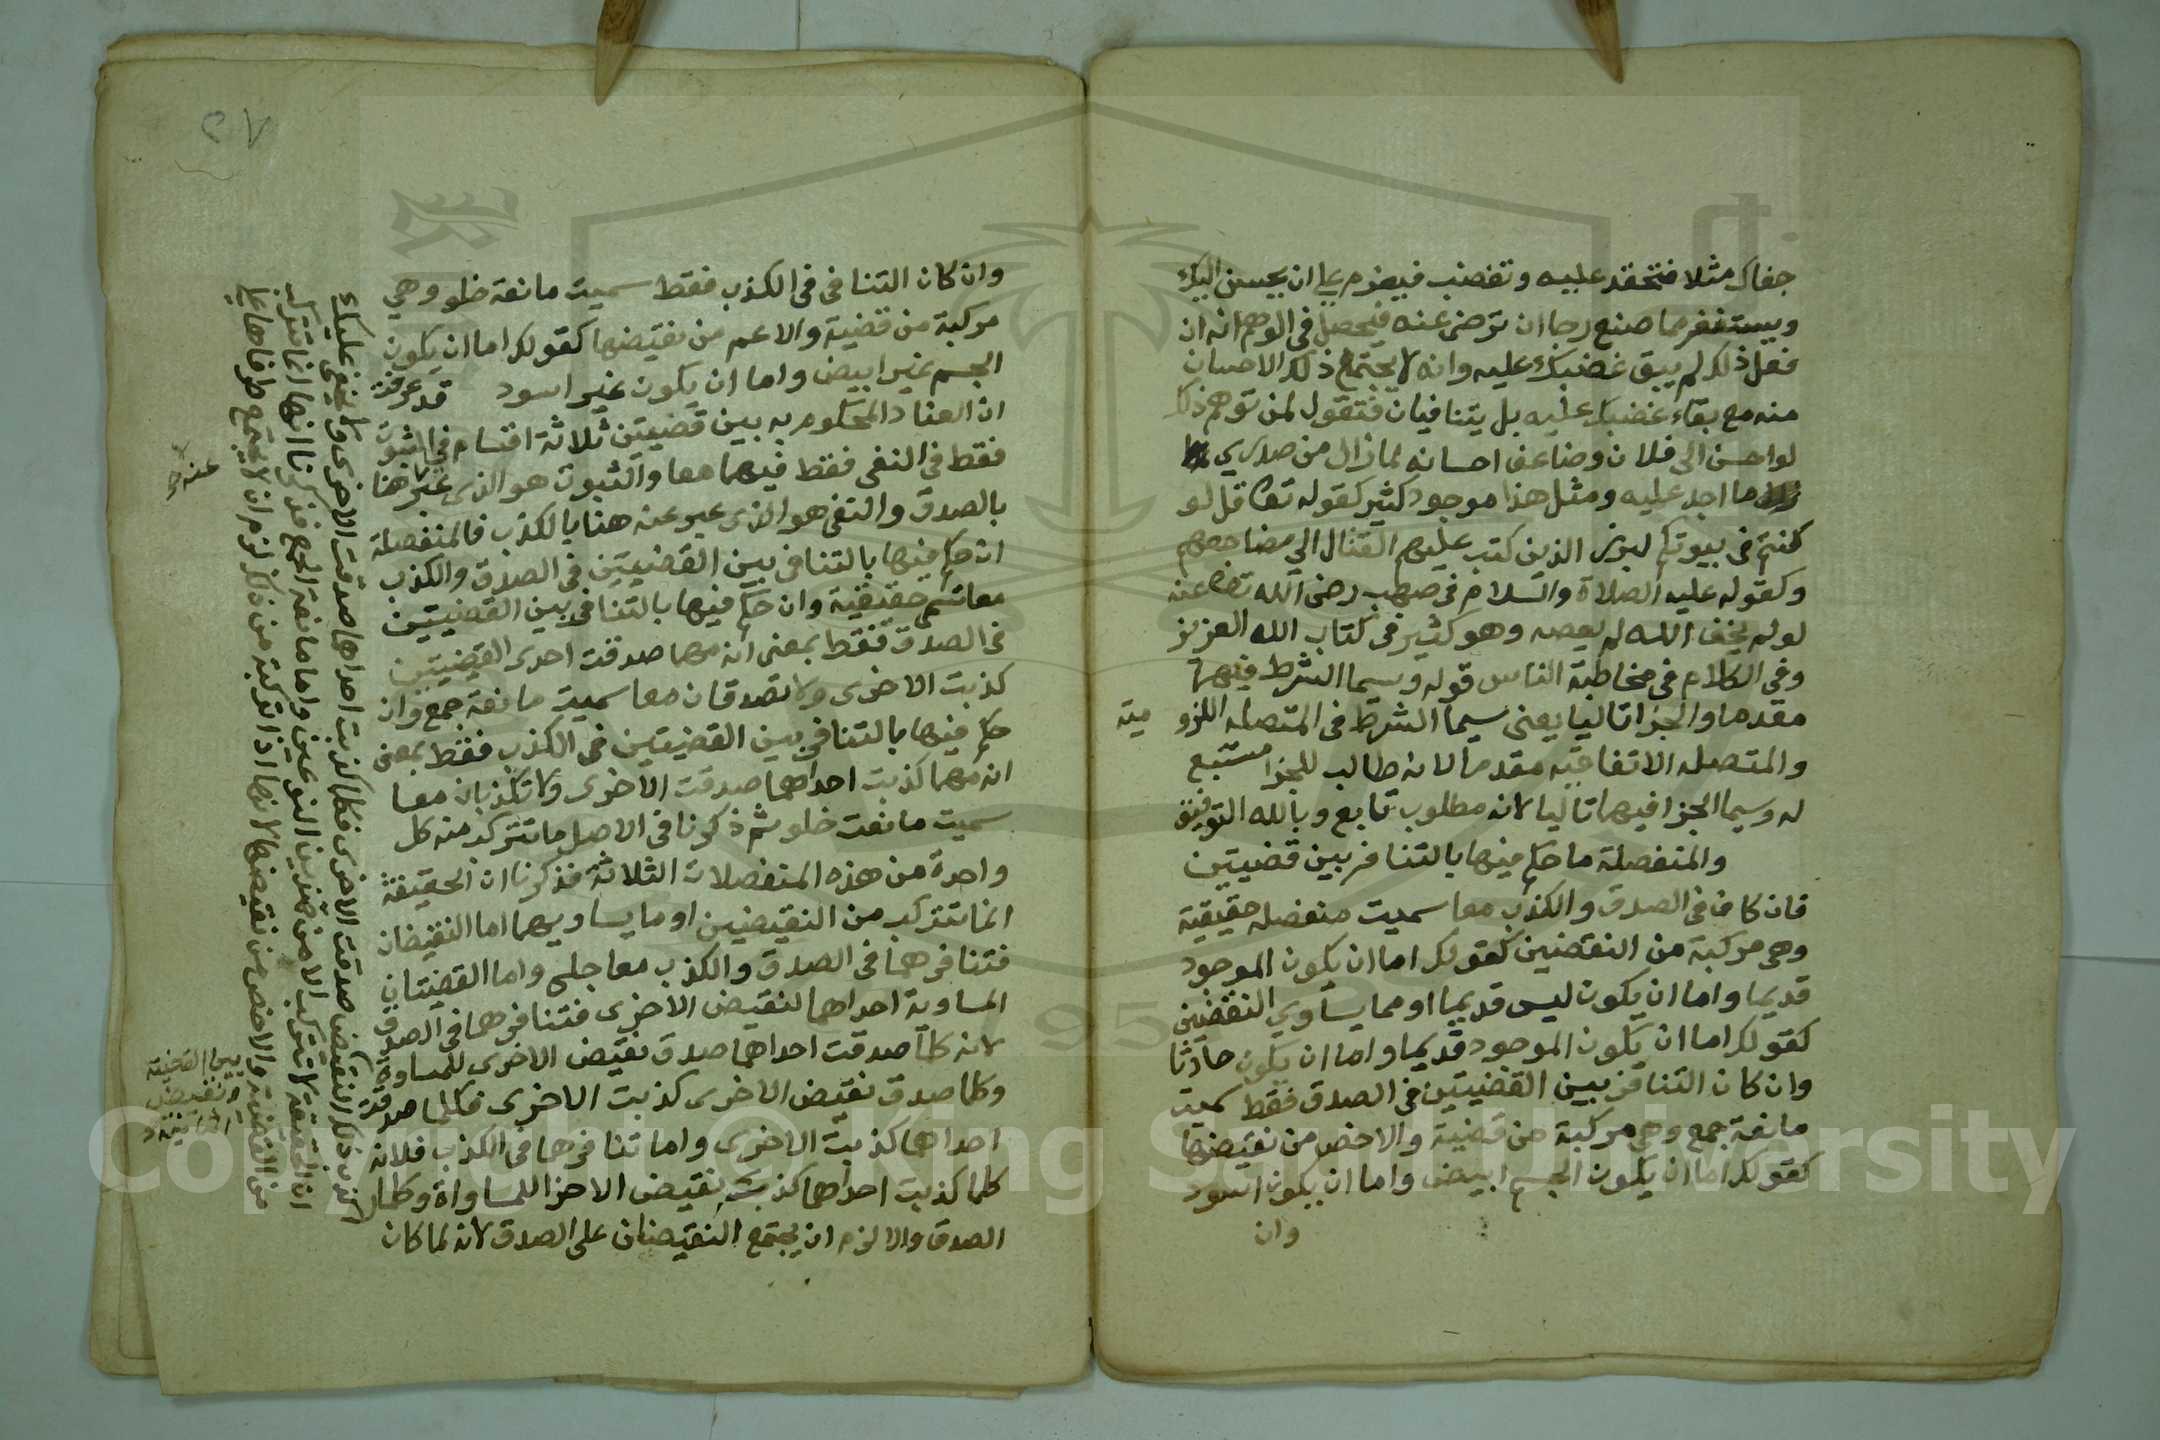 جفاك مثلا فتحقد عليه وتغضب فيعزم على ان يحسن اليك
ويستغفر مما صنع رجا ان ترضى عنه فيحصل في الوهم انه ان
فعل ذلك لم يبق غضبك عليه وانه لا يجتمع ذلك الاحسان
منه مع بقاء غضبك عليه بل يتنافيان فتقول لمن توهم ذلك
لو احسن الي فلان وضاعف احسانه لما زال من صدري
ما اجد عليه ومثل هذا موجود كثير كقوله تعا قل لو
كنتم في بيوتكم لبرز الذين كتب عليهم القتال الى مضاجعهم
وكقوله عليه الصلاة والسلام في صهيب رضى الله تعا عنه
لو لم يخف الله لم يعصه وهو كثير في كتاب الله العزيز
وفي الكلام في مخاطبة الناس قوله وسيما الشرط فيهما
مقدما والجزا تاليا يعنى سيما الشرط في المتصله اللزو مية
والمتصله الاتفاقية مقدما لانه طالب للجزا مستتبع
له وسيما الجزا فيهما تاليا لانه مطلوب تابع وبالله التوفيق
والمنفصلة ما حكم فيها بالتنافر بين قضيتين
فان كان في الصدق والكذب معا سميت منفصله حقيقية
وهي مركبة من النقضين كقولك اما ان يكون الموجود
قديما واما ان يكون ليس قديما او مما يساوي النقضين
كقولك اما ان يكون الموجود قديما واما ان يكون حادثا
وان كان التنافر بين القضيتين في الصدق فقط سميت
مانعة جمع وهي مركبة من قضية والاخص من نقيضها
كقولك اما ان يكون الجسم ابيض واما ان يكون اسود
وان
٢٧
وان كان التنافي في الكذب فقط سميت مانعة خلو وهي
مركبة من قضية والاعم من نقيضها كقولك اما ان يكون
الجسم غير ابيض واما ان يكون غير اسود قد عرفت
ان العناد المحكوم به بين قضيتين ثلاثة اقسام في الثبوت
فقط في النفى فقط فيهما معا والثبوت هو الذى عبر هنا
بالصدق والنفى هو الذى عبر عنه هنا بالكذب فالمنفصلة
ان حكم فيها بالتنافى بين القضيتين في الصدق والكذب
معا تسم حقيقية وان حكم فيها بالتنافي بين القضيتين
في الصدق فقط بمعنى انه مهما صدقت احدى القضيتين
كذبت الاخرى ولا تصدقان معا سميت مانعة جمع وان
حكم فيها بالتنافي بين القضيتين في الكذب فقط بمعنى
انه مهما كذبت احداهما صدقت الاخرى ولا تكذبان معا
سميت مانعت خلو ثم ذكرنا في الاصل ما تتركب منه كل
واحدة من هذه المنفصلات الثلاثة فذكرنا ان الحقيقية
انما تتركب من النقيضين او ما يساويهما اما النقيضان
فتنافرهما في الصدق والكذب معا جلى واما القضيتان
المساوية احداهما لنقيض الاخرى فتنافرهما في الصدق
لانه كلما صدقت احداهما صدق نقيض الاخرى للمساوة
وكلما صدق نقيض الاخرى كذبت الاخرى فكلما صدقت
احداهما كذبت الاخرى واما تنافرهما في الكذب فلانه
كلما كذبت احداهما كذبت نقيض الاخرا للمساواة وكلما
الصدق والا لزم ان يجتمع النقيضان على الصدق لانه لما كان
عنه
صدقت الاخرى فكلما كذبت احداهما صدقت الاخرى
ان الحقيقة لا تتركب الا من هذين النوعين واما مانعة الجمع فذكرنا انها انما تتركب
من القضية والاخص من نقيضها لانها اذا تركبة من ذلك لزم ان لا يجتمع طرفاها على
بين القضية
ونقيض
Copyright © King Saud University
1957